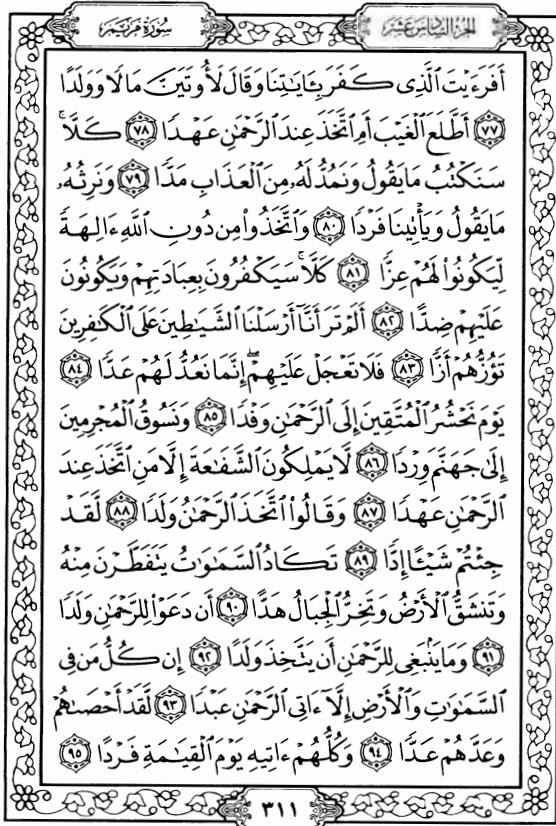 سُورَةُ مَرْيَمَ
الجزء السادس عشر
أَفَرَءَيْتَ ٱلَّذِى كَفَرَ بِـَٔايَٰتِنَا وَقَالَ لَأُوتَيَنَّ مَالًا وَوَلَدًا
﴿٧٧﴾ أَطَّلَعَ ٱلْغَيْبَ أَمِ ٱتَّخَذَ عِندَ ٱلرَّحْمَٰنِ عَهْدًا ﴿٧٨﴾ كَلَّا ۚ
سَنَكْتُبُ مَا يَقُولُ وَنَمُدُّ لَهُۥ مِنَ ٱلْعَذَابِ مَدًّا ﴿٧٩﴾ وَنَرِثُهُۥ
مَا يَقُولُ وَيَأْتِينَا فَرْدًا ﴿٨٠﴾ وَٱتَّخَذُوا۟ مِن دُونِ ٱللَّهِ ءَالِهَةً
لِّيَكُونُوا۟ لَهُمْ عِزًّا ﴿٨١﴾ كَلَّا ۚ سَيَكْفُرُونَ بِعِبَادَتِهِمْ وَيَكُونُونَ
عَلَيْهِمْ ضِدًّا ﴿٨٢﴾ أَلَمْ تَرَ أَنَّآ أَرْسَلْنَا ٱلشَّيَٰطِينَ عَلَى ٱلْكَٰفِرِينَ
تَؤُزُّهُمْ أَزًّا ﴿٨٣﴾ فَلَا تَعْجَلْ عَلَيْهِمْ ۖ إِنَّمَا نَعُدُّ لَهُمْ عَدًّا ﴿٨٤﴾
يَوْمَ نَحْشُرُ ٱلْمُتَّقِينَ إِلَى ٱلرَّحْمَٰنِ وَفْدًا ﴿٨٥﴾ وَنَسُوقُ ٱلْمُجْرِمِينَ
إِلَىٰ جَهَنَّمَ وِرْدًا ﴿٨٦﴾ لَّا يَمْلِكُونَ ٱلشَّفَٰعَةَ إِلَّا مَنِ ٱتَّخَذَ عِندَ
ٱلرَّحْمَٰنِ عَهْدًا ﴿٨٧﴾ وَقَالُوا۟ ٱتَّخَذَ ٱلرَّحْمَٰنُ وَلَدًا ﴿٨٨﴾ لَّقَدْ
جِئْتُمْ شَيْـًٔا إِدًّا ﴿٨٩﴾ تَكَادُ ٱلسَّمَٰوَٰتُ يَتَفَطَّرْنَ مِنْهُ
وَتَنشَقُّ ٱلْأَرْضُ وَتَخِرُّ ٱلْجِبَالُ هَدًّا ﴿٩٠﴾ أَن دَعَوْا۟ لِلرَّحْمَٰنِ وَلَدًا
﴿٩١﴾ وَمَا يَنۢبَغِى لِلرَّحْمَٰنِ أَن يَتَّخِذَ وَلَدًا ﴿٩٢﴾ إِن كُلُّ مَن فِى
ٱلسَّمَٰوَٰتِ وَٱلْأَرْضِ إِلَّآ ءَاتِى ٱلرَّحْمَٰنِ عَبْدًا ﴿٩٣﴾ لَّقَدْ أَحْصَىٰهُمْ
وَعَدَّهُمْ عَدًّا ﴿٩٤﴾ وَكُلُّهُمْ ءَاتِيهِ يَوْمَ ٱلْقِيَٰمَةِ فَرْدًا ﴿٩٥﴾
٣١١